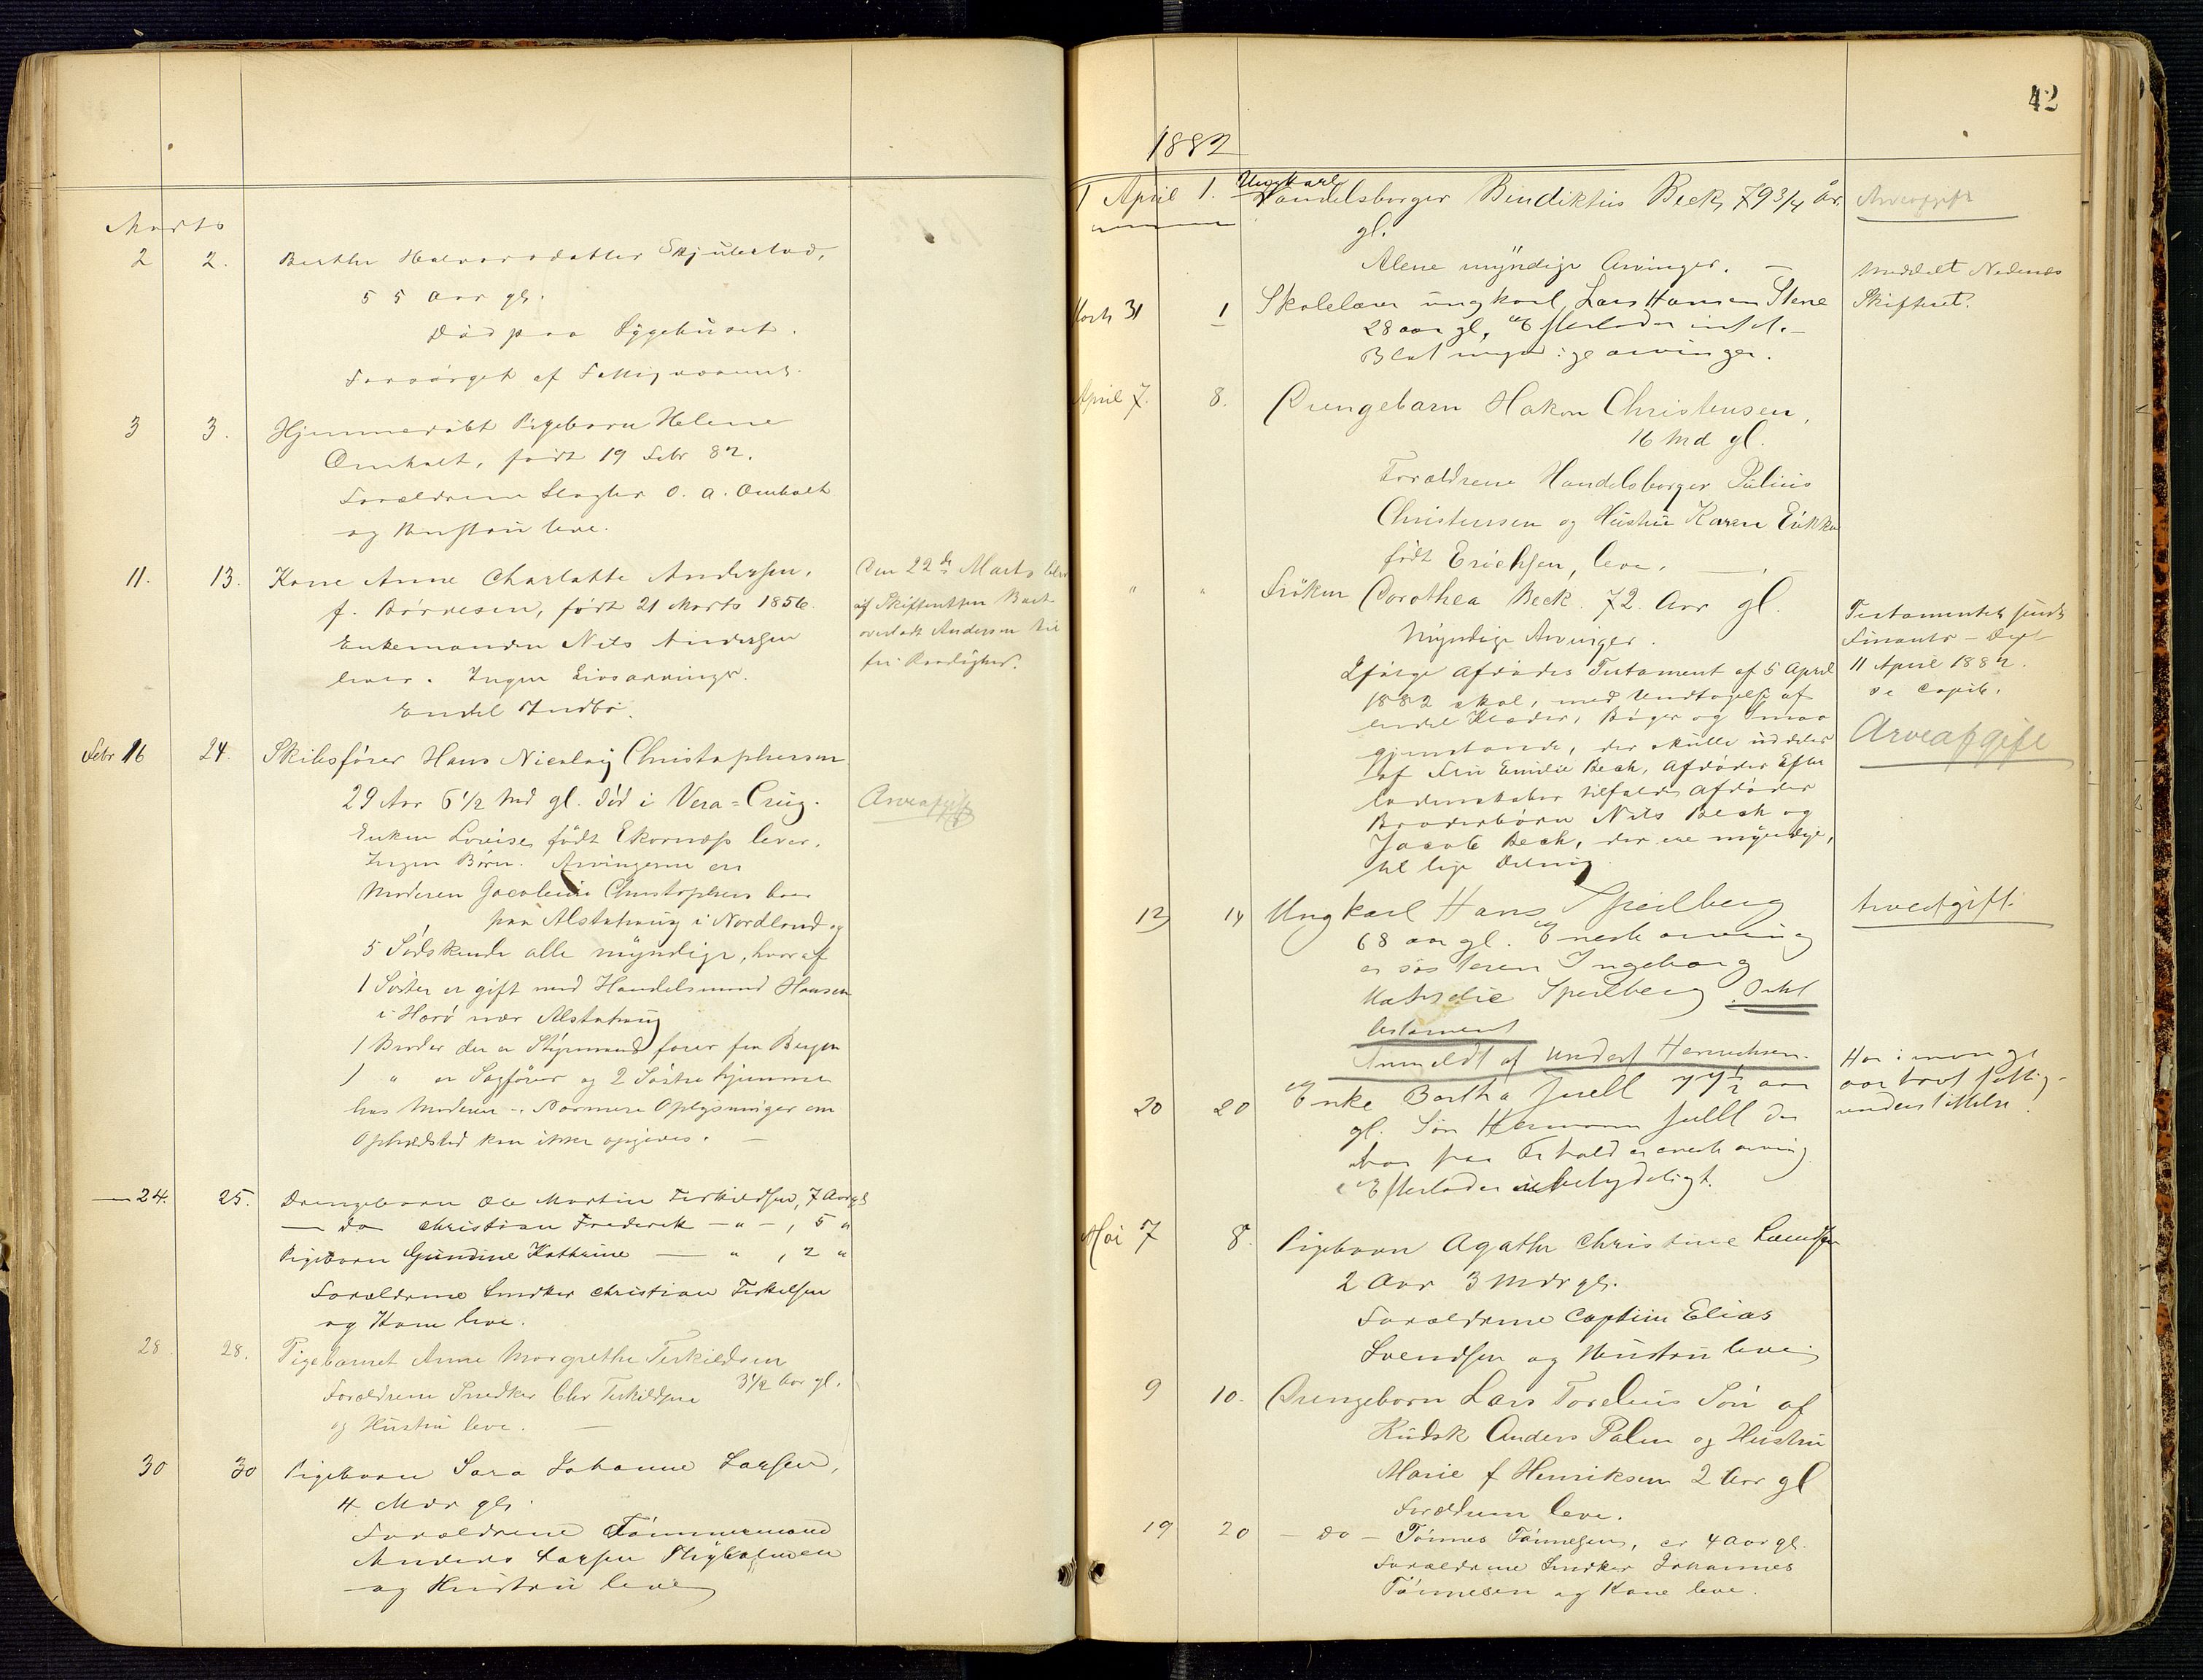 Marts
2 2. Berthe Halvorsdatter Skjulestad,
55 Aar gl.
Død paa Sygehuset.
Forsørget af Fattigvæsenet.
3 3. Hjemmedøbt Pigebarn Helene
Omholt, født 19 Febr 82.
Forældrene Slagter O. A. Omholt
og Hustru leve.
11. 13. Kone Anne Charlotte Andersen,
f. Børresen, født 21 Marts 1856.
Enkemanden Nils Andersen
lever. Ingen Livsarvinger.
Endel Indbo.
Den 22de Marts blev
af Skifteretten Boet
overladt Andersen til
fri Raadighed.
Febr 16 24. Skibsfører Hans Nicolay Christophersen
29 Aar 6 1/2 Md gl. død i Vera=Cruz.
Arveafgift
Enken Lovise, født Ekornæss lever.
Ingen Børn. Arvingerne ere
Moderen Jacobine Christophersen boer
paa Alstahaug i Nordland og
5 Sødskende alle myndige, hvoraf
1 Søster er gift med Handelsmand Hansen
i Herø nær Alstahaug
1 Broder der er Styrmand farer fra Bergen
1 " er Sagfører og 2 Søstre hjemme
hos Moderen. Nærmere Oplysninger om
Opholdsted kan ikke opgives. —
— 24. 25. Drengebarn Ole Martin Terkildsen, 7 Aar gl
— do Christian Frederik — " —, 5 "
Pigebarn Gundine Kathrine — ", 2 "
Forældrene Snedker Christian Terkelsen
og Kone leve.
28. 28. Pigebarnet Anne Margrethe Terkildsen
3 1/2 Aar gl.
Forældrene Snedker Chr Terkildsen
og Hustru leve. —
30 30 Pigebarn Sara Johanne Larsen,
4 Mdr gl.
Forældrene Tømmermand
Anders Larsen
og Hustru leve
42
1882
1 April 1. Ungkarl
Handelsborger Bendiktus Beck, 79 3/4 År
gl.
Arveafgift
Alene myndige Arvinger. —
Marts 31 1 Skolelærer ungkarl Lars Hansen Stene
28 aar gl, Efterlader intet. —
Blot myndige arvinger.
Meddelt Nedenes
Skifteret.
April 7. 8. Drengebarn Hakon Christensen,
16 Md gl.
Forældrene Handelsborger Julius
Christensen og Hustru Karen Erikka
født Erichsen, leve. —
" " Frøken Dorothea Beck. 72 Aar gl.
Myndige Arvinger.
Ifølge Afdødes Testament af 5 April
1882 skal, med Undtagelse af
endel Klæder, Bøger og Smaa
gjenstande, der skulle uddeles
af Fru Emilie Beck, Afdødes Efter
ladenskaber tilfalde Afdødes
Broderbørn Nils Beck og
Jacob Beck, der ere myndige,
til lige Deling
Testamentet sendt
Finants-Dept
11 April 1882.
se Copib.
Arveafgift
12 14 Ungkarl Hans Speilberg
68 aar gl. Eneste arving
er søsteren Ingeborg
Mathilde Speilberg. Ortel
testament
Anmeldt af Underf Henrichsen.
Arveafgift.
20 20 Enke Bertha Juell 77 1/2 aar
gl. Søn Hermann Juell der
boer paa er eneste arving
Efterlader ubetydeligt.
Har i mange
aar havt fattig-
understøttelse.
Mai 7 8. Pigebarn Agathe Christine Svendsen
2 Aar 3 Mdr gl.
Forældrene Captein Elias
Svendsen og Hustru leve
9 10. Drengebarn Lars Torelius Søn af
Kudsk Anders Palm og Hustru
Marie f Henriksen 2 Aar gl
Forældrene leve.
19 20 — do — Tønnes Tønnesen, er 4 Aar gl.
Forældrene Snedker Johannes
Tønnesen og Kone leve.